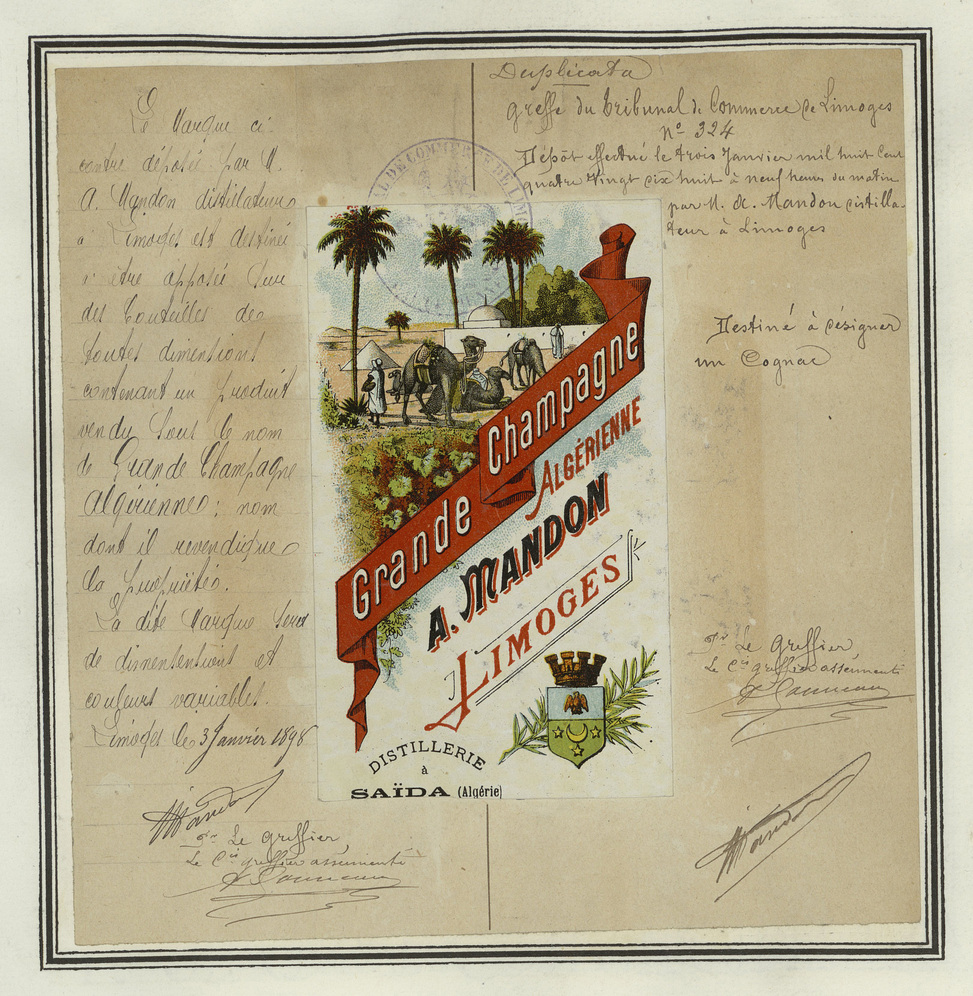 La Marque ci-
contre déposée par M
A. Mandon distillateur
a Limoges est destiné
a être apposée sur
des bouteilles de
toutes dimensions
contenant un produit
vendu sous le nom
de Grande Champagne
Algérienne ; nom
dont il revendique
la propriété.
La dite Marque sera
de dimententions et
couleurs variables.
Limoges le 3 Janvier 1898
AMandon
Pr Le Greffier
Le Cis greffier assermenté
Duplicata
Greffe du Tribunal de Commerce de Limoges
No 324
Dépôt effectué le trois Janvier mil huit Cent
quatre Vingt dix huit à neuf heures du matin
par M. A. Mandon distilla-
teur à Limoges
Destiné à désigner
un Cognac
Pr Le Greffier,
Le Cis greffier assermenté
AMandon
AL DE COMMERCE DE LIM
Grande Champagne
ALGÉRIENNE
A. MANDON
LIMOGES
DISTILLERIE
à
SAÏDA (Algérie)